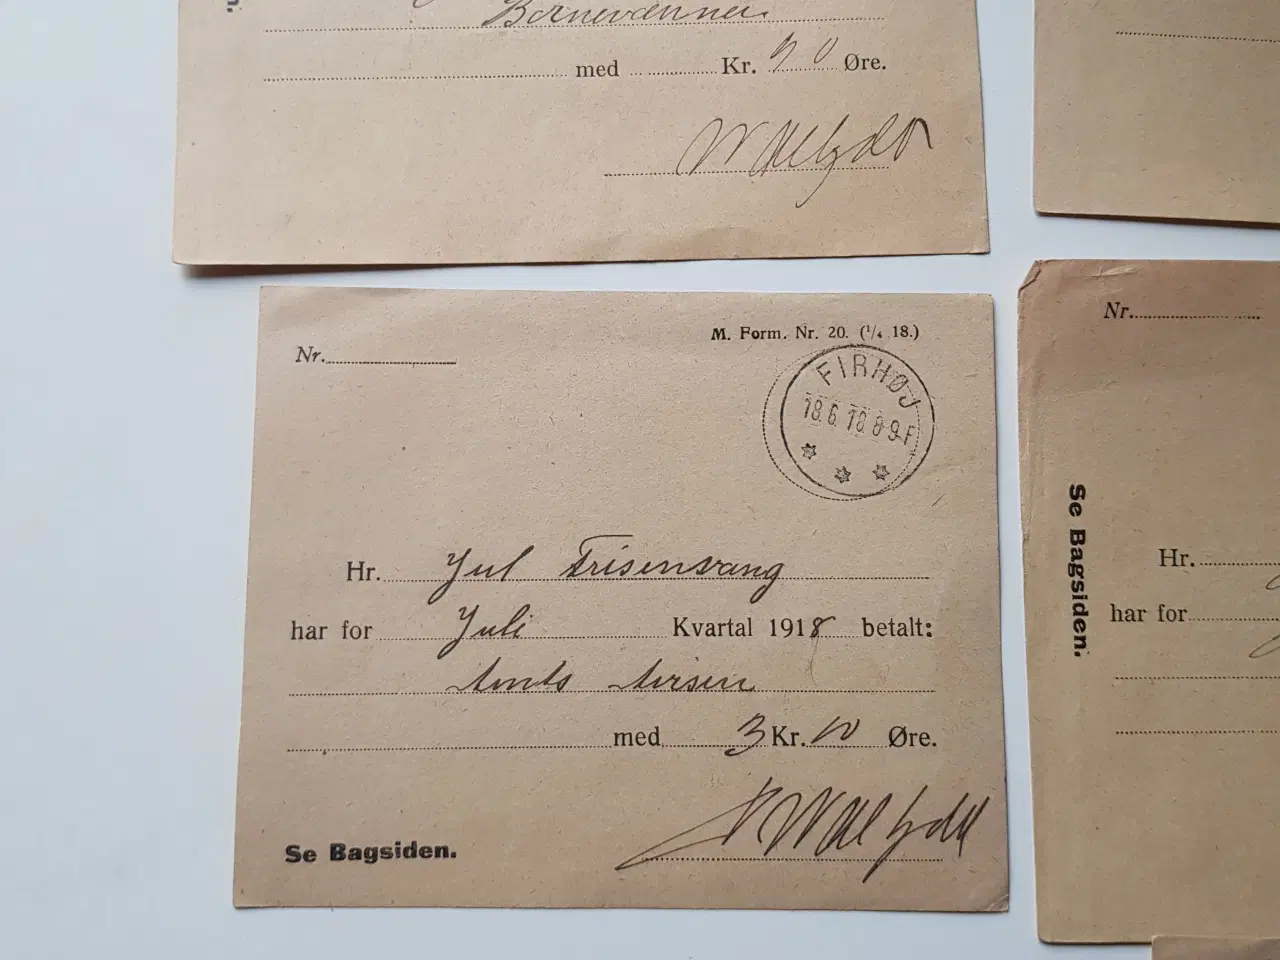 Børnevennen
med Kr. 90 Øre.
M. Form. Nr. 20. (¹/₄ 18.)
Nr.
FIRHØJ
18.6.18. 8-9 F
Hr. Jul Frisenvang
har for Juli Kvartal 1918 betalt:
Amts Avisen
med 3 Kr. 10 Øre.
Se Bagsiden.
Nr.
Se Bagsiden.
Hr.
har for